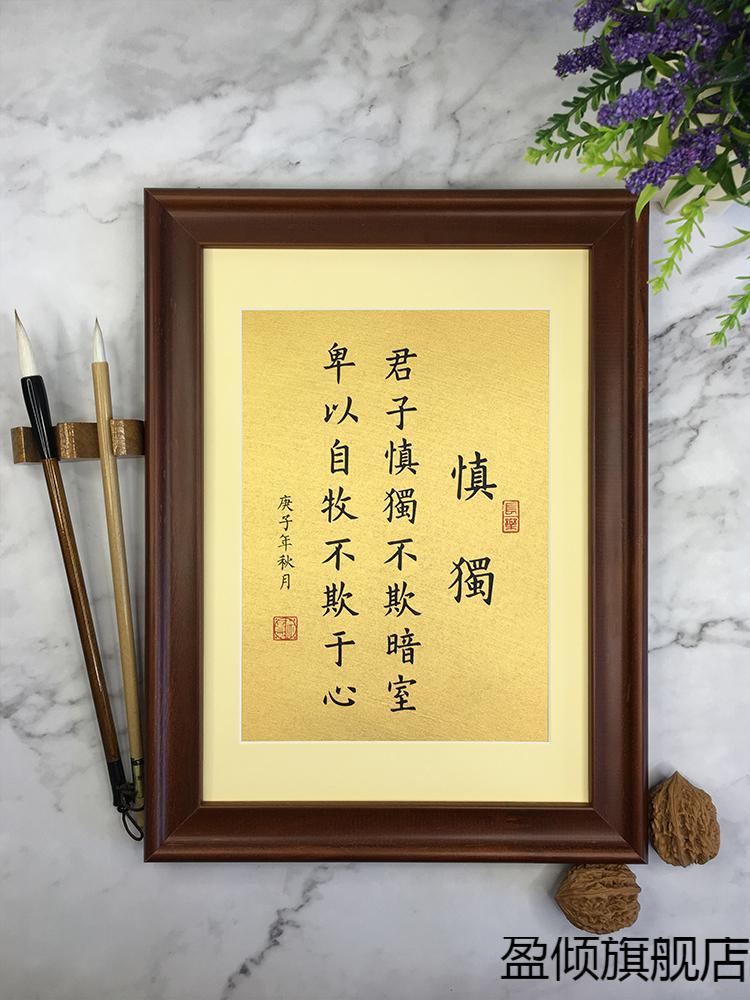 慎獨
君子慎獨不欺暗室
卑以自牧不欺于心
庚子年秋月
盈倾旗舰店